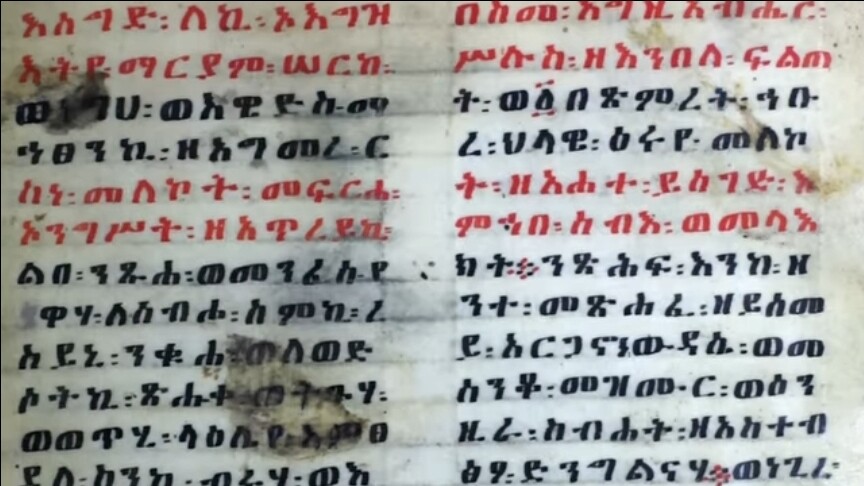 እሰግድ፡ለኪ፡ኦእግዝ
እትየ፡ማርያም፡ሠርከ፡
ወነግሀ፡ወእዊድ፡ስመ
ኀፀንኪ፡ዘእግመረ፡ር
ስነ፡መለኮት፡መፍርሐ፡
ኦንግሥት፡ዘአጥረይኪ፡
ልበ፡ንጹሐ፡ወመንፈሰ፡የ
ዋሃ፡ለስብሐ፡ስምኪ፡ረ
ስይኒ፡ንቁሐ፡ወለወድ
ሶትኪ፡ጽሑተ፡
ወወጥሂ፡ላዕሌየ፡እምፀ
በስመ፡እግዚአብሔር፡
ሥሉስ፡ዘእንበለ፡ፍልጠ
ት፡ወዕበጽምረት፡ኀቡ
ረ፡ህላዌ፡ዕሩየ፡መለኮ
ት፡ዘአሐተ፡ይሰገድ፡እ
ምኀበ፡ሰብእ፡ወመላእ
ክት፨ንጽሕፍ፡እንከ፡ዘ
ንተ፡መጽሐፈ፡ዘይሰመ
ይ፡አርጋኖነ፡ውዳሴ፡ወመ
ሰንቆ፡መዝሙር፡ወዕን
ዚራ፡ስብሐት፡ዘአስተብ
ፅዖ፡ድንግልናሃ፨ወነጊረ፡